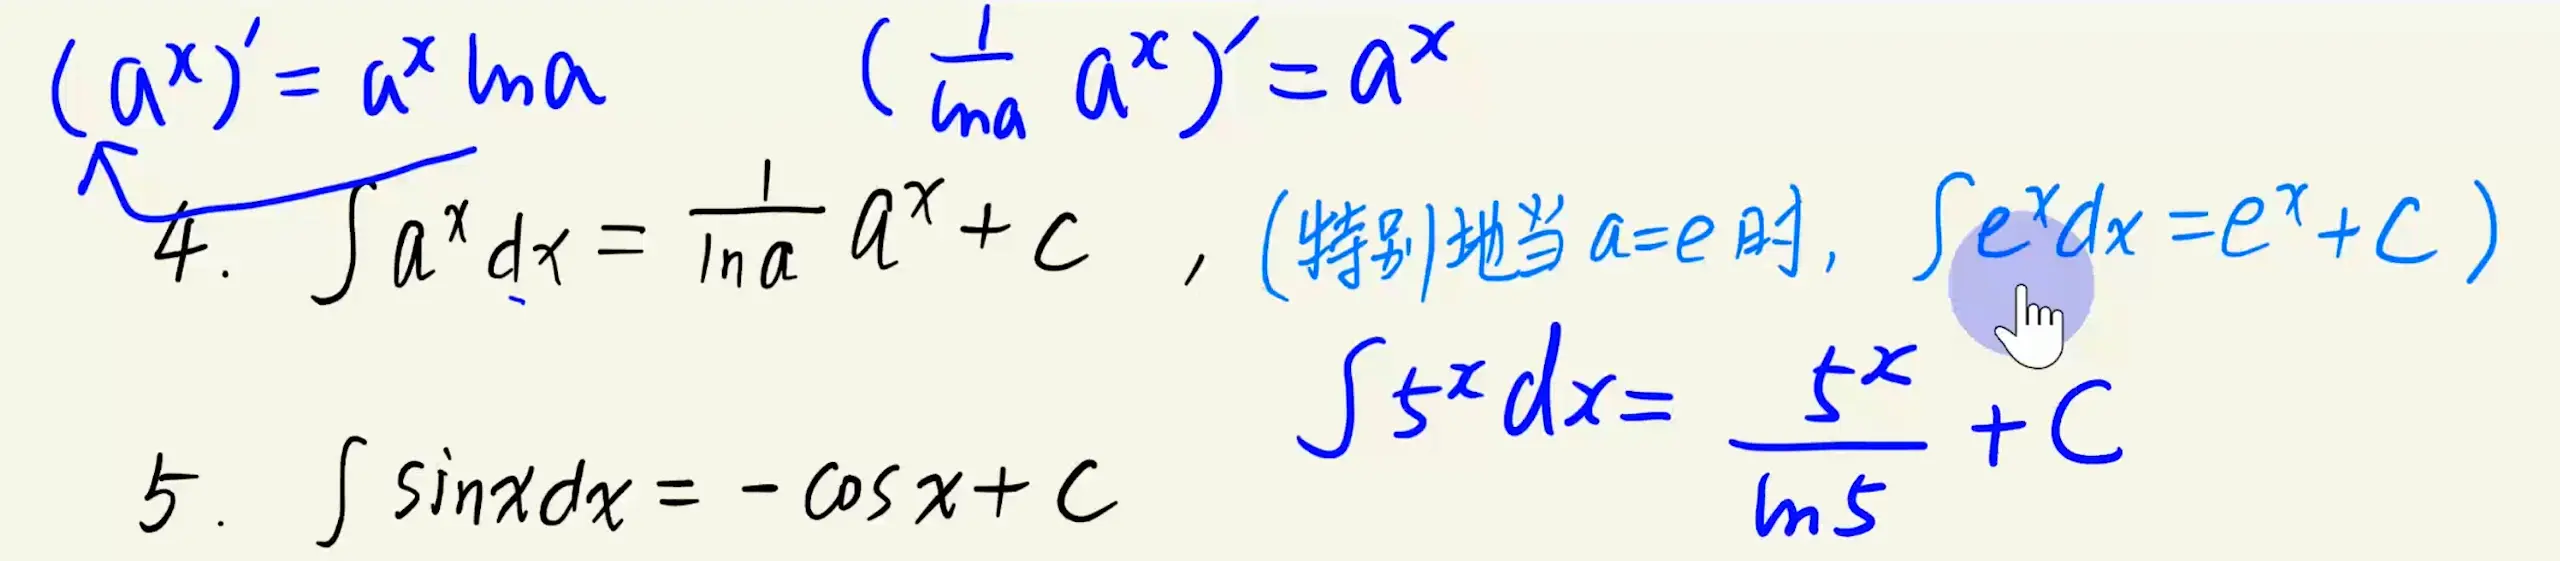 (a^x)' = a^x ln a    (1/ln a a^x)' = a^x
4. ∫ a^x dx = 1/ln a a^x + C , (特别地当 a=e 时, ∫e^x dx = e^x + C)
∫5^x dx = 5^x/ln 5 + C
5. ∫ sinx dx = - cos x + C